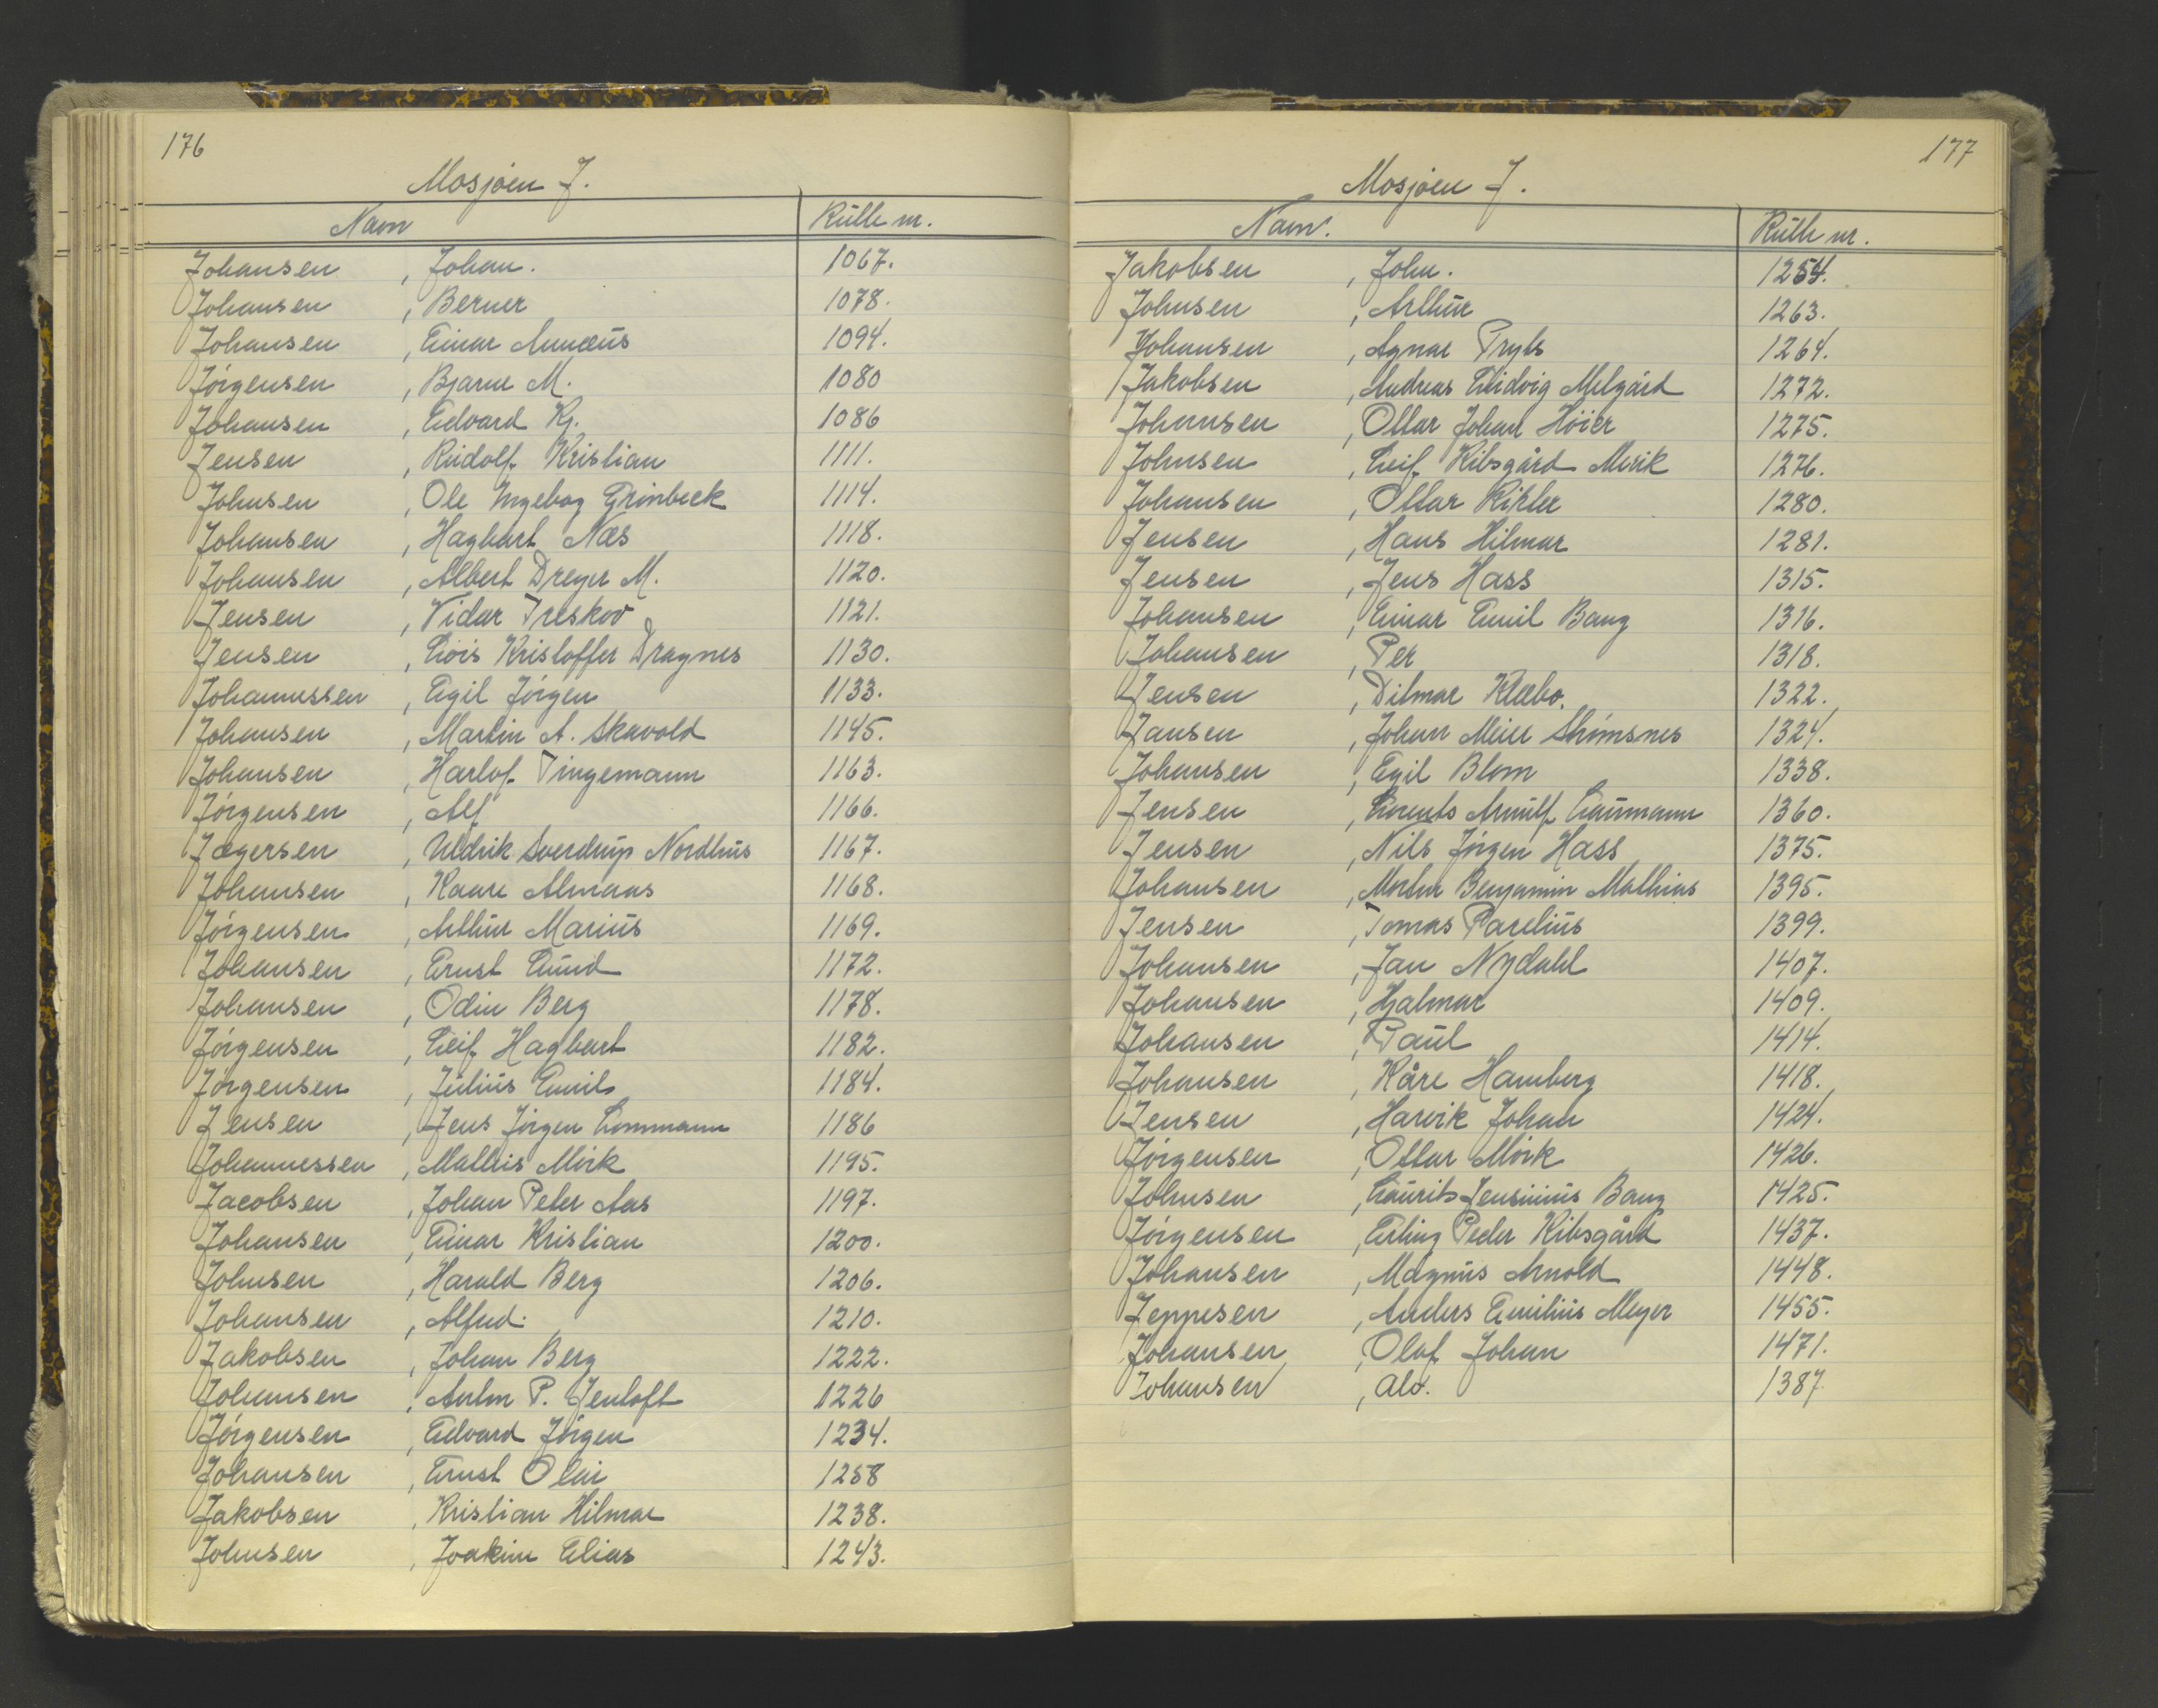 176
Mosjøen J.
Navn Rulle nr.
Johansen , Johan. 1067.
Johansen , Berner 1078.
Johansen , Einar Annæus 1094.
Jörgensen , Bjarne M. 1080
Johansen , Edvard Kj. 1086
Jensen , Rudolf Kristian 1111.
Johnsen , Ole Ingebog Grinbeck 1114.
Johansen , Hagbart Næs 1118.
Johansen , Albert Dreyer M. 1120.
Jensen , Vidar Treskov 1121.
Jensen , Kristoffer Dragnes 1130.
Johannessen , Egil Jörgen 1133.
Johansen , Martin A. Skavold 1145.
Johansen , Harlof Tingemann 1163.
Jörgensen , Alf 1166.
Jægersen , Uldrik Sverdrup Nordhus 1167.
Johansen , Kaare Almaas 1168.
Jörgensen , Arthur Marius 1169.
Johansen , Ernst Lund 1172.
Johansen , Odin Berg 1178.
Jörgensen , Leif Hagbart 1182.
Jörgensen , Julius Emil 1184.
Jensen , Jens Jörgen Lommann 1186
Johannessen , Mathis Mörk 1195.
Jacobsen , Johan Peter Aas 1197.
Johansen , Einar Kristian 1200.
Johnsen , Harald Berg 1206.
Johansen , Alfred. 1210.
Jakobsen , Johan Berg 1222.
Johansen , Anton P. Jentoft 1226
Jörgensen , Edvard Jörgen 1234.
Johansen , Ernst Olai 1258
Jakobsen , Kristian Hilmar 1238.
Johnsen , Joakim Elias 1243.
177
Mosjøen J.
Navn. Rulle nr.
Jakobsen , John. 1254.
Johnsen , Arthur 1263.
Johansen , Agnar Pryts 1264.
Jakobsen , Andreas Ludvig Melgård 1272.
Johansen , Ottar Johan Höier 1275.
Johnsen , Leif Kibsgård Mevik 1276.
Johansen , Ottar Rikter 1280.
Jensen , Hans Hilmar 1281.
Jensen , Jens Hass 1315.
Johansen , Einar Emil Bang 1316.
Johansen , Per 1318.
Jensen , Ditmar Klæbo. 1322.
Jansen , Johan Meier Strömsnes 1324.
Johansen , Egil Blom 1338.
Jensen , Lorents Arnulf Laumann 1360.
Jensen , Nils Jörgen Hass 1375.
Johansen , Morten Benjamin Mathias 1395.
Jensen , Tomas Parelius 1399.
Johansen , Jan Nydahl 1407.
Johansen , Hjalmar 1409.
Johansen , Paul 1414.
Johansen , Kåre Hamberg 1418.
Jensen , Harvik Johan 1424.
Jörgensen , Ottar Mörk 1426.
Johnsen , Laurits Jensinius Bang 1425.
Jörgensen , Erling Peder Kibsgård 1437.
Johansen , Magnus Arnold 1448.
Jeppesen , Anders Emilius Meyer 1455.
Johansen , Olaf Johan 1471.
Johansen , Alv. 1387